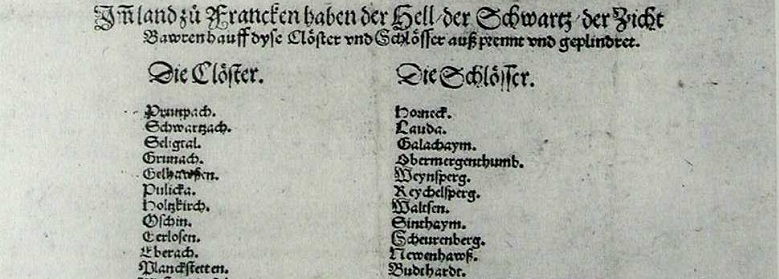 Jn̄land zů Francken haben der Hell/der Schwartz/der Zicht
Bawren hauff dyse Clöster vnd Schlösser auß prennt vnd geplindret.
Die Clöster.
Die Schlösser.
Prunpach.
Schwartzach.
Seligtal.
Grunach.
Gelhawsen.
Pulicka.
Holtzkirch.
Oschin.
Cerlosen.
Eberach.
Planckstetten.
Horneck.
Lauda.
Galachaym.
Obermergenthumb.
Weynsperg.
Reychelsperg.
Waltsen.
Sinthaym.
Scheurenberg.
Newenhawß.
Budthardt.